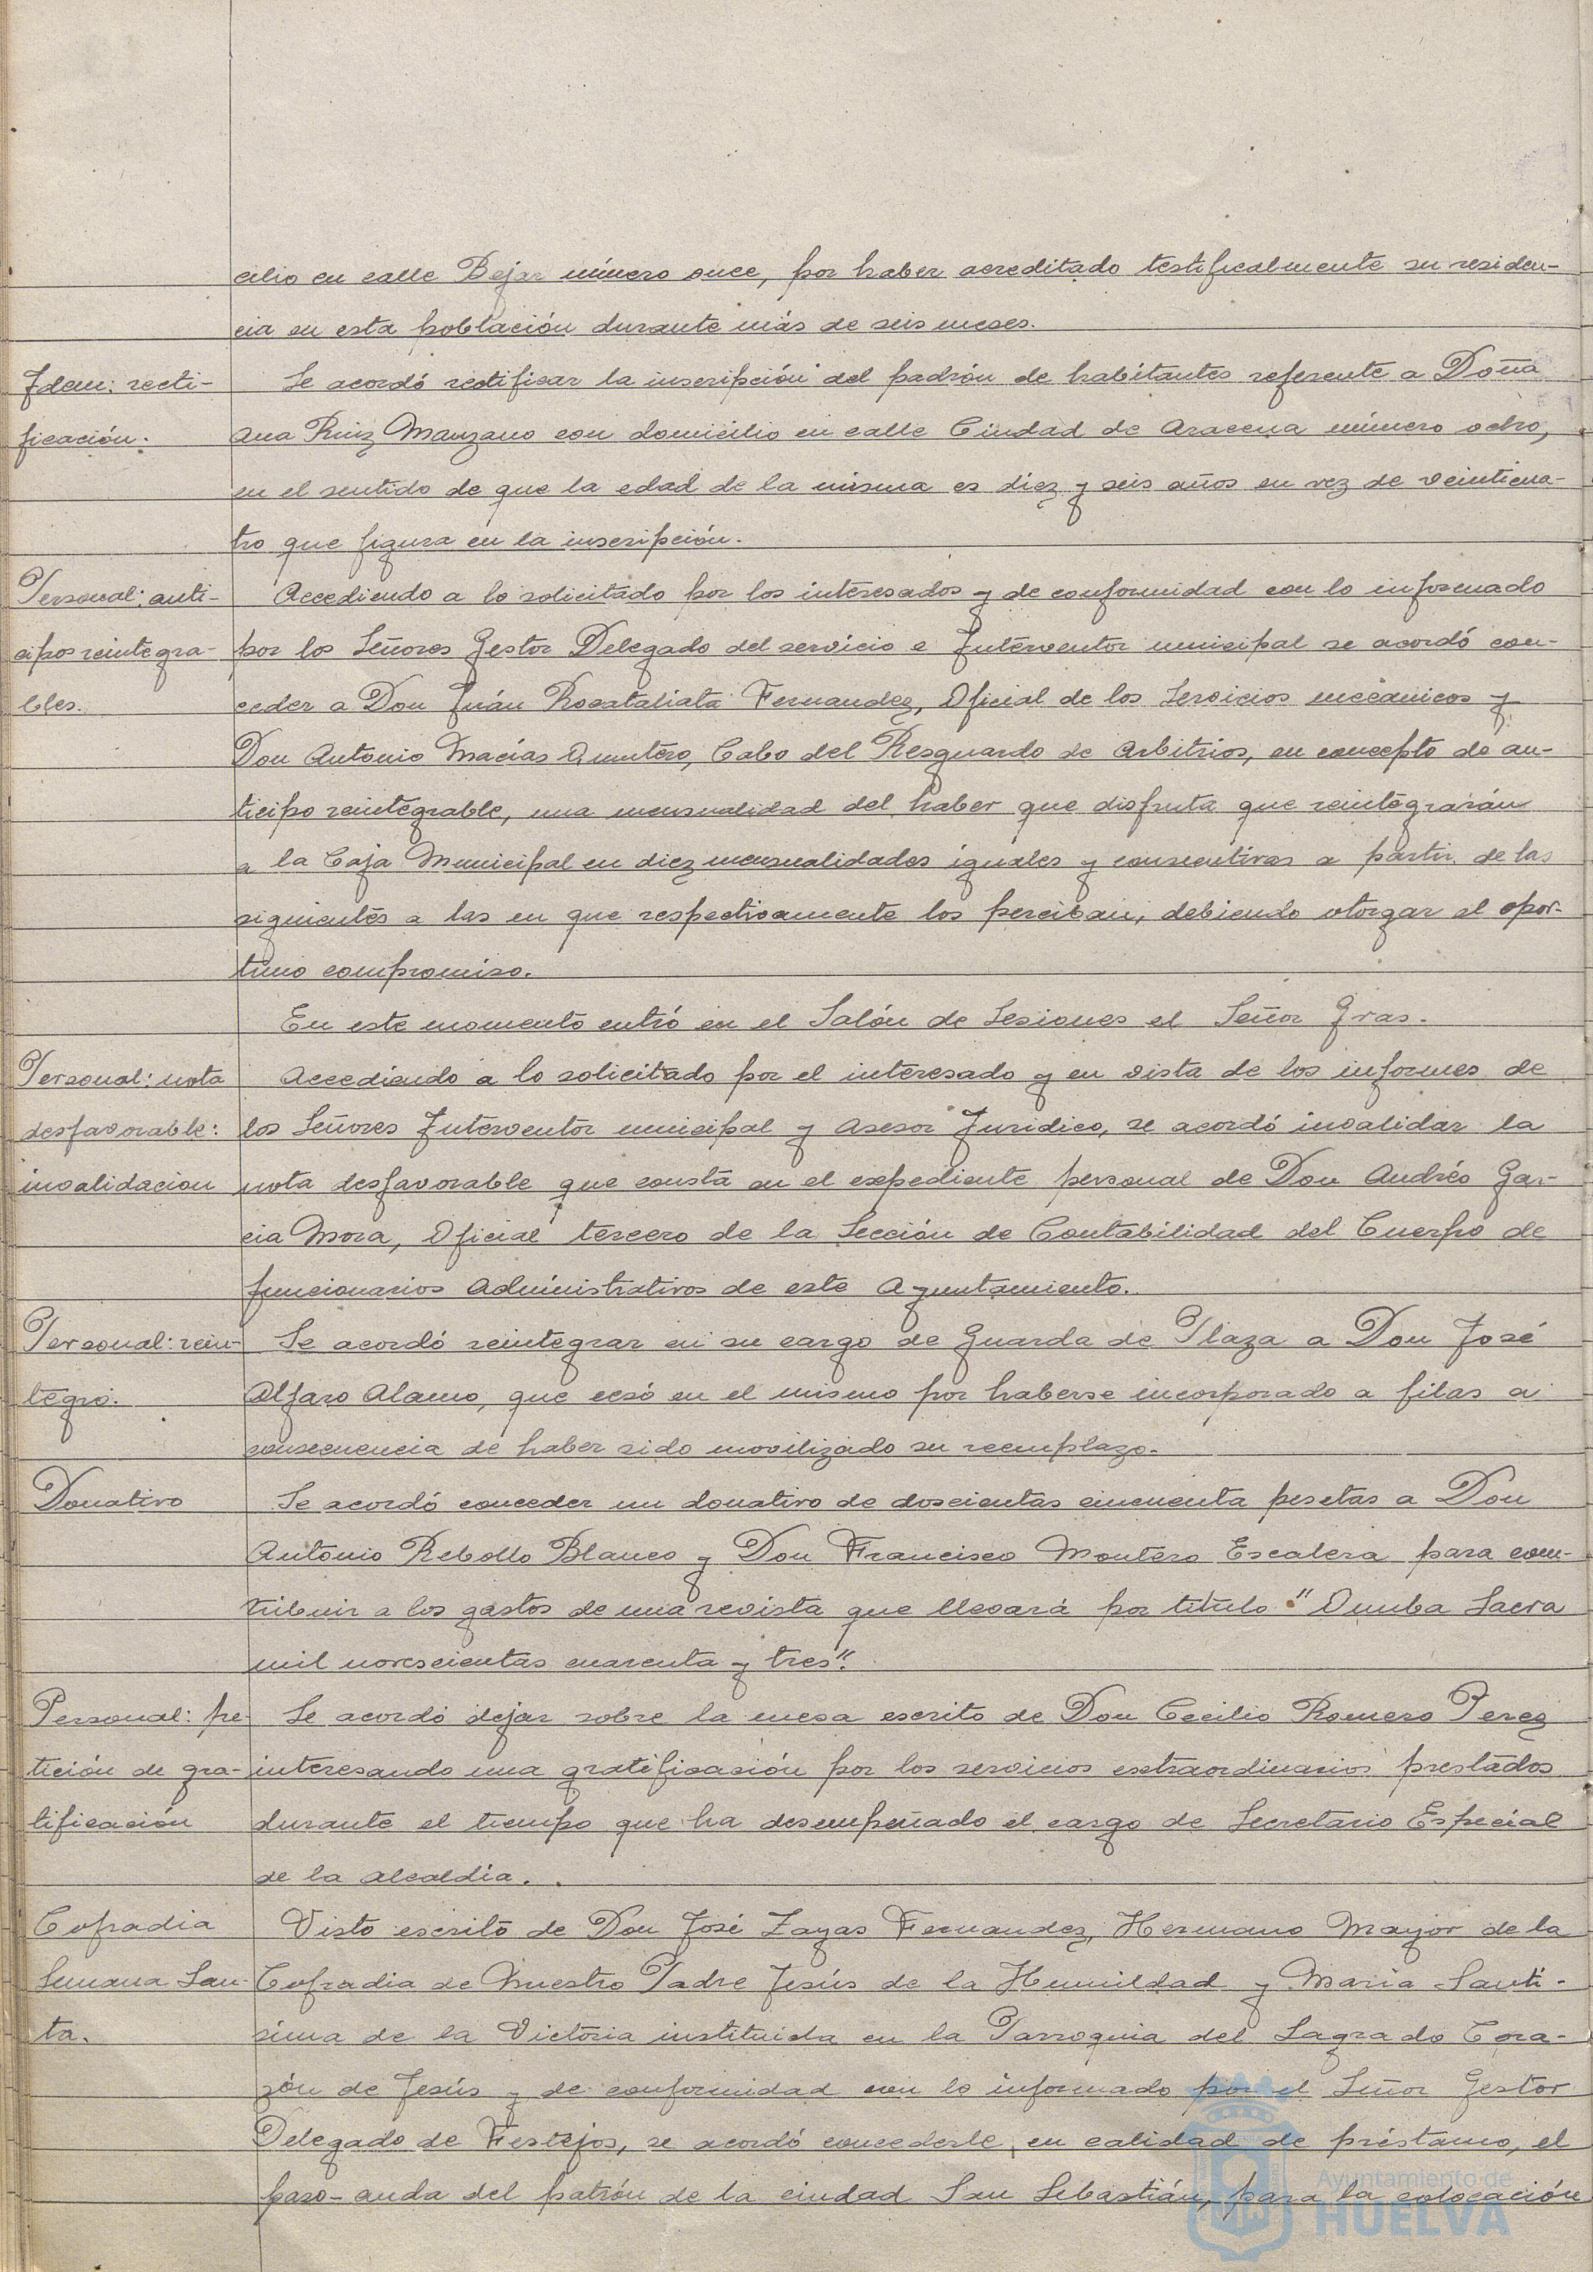 cilio en calle Bejar número once, por haber acreditado testificalmente su residen-
cia en esta población durante más de seis meses.
Idem: recti-
ficación.
Se acordó rectificar la inscripción del padrón de habitantes referente a Doña
Ana Ruiz Manzano con domicilio en calle Ciudad de Aracena número ocho,
en el sentido de que la edad de la misma es diez y seis años en vez de veinticua-
tro que figura en la inscripción.
Personal: anti-
cipos reintegra-
bles.
Accediendo a lo solicitado por los interesados y de conformidad con lo informado
por los Señores Gestor Delegado del servicio e Interventor municipal se acordó con-
ceder a Don Juán Fernandez, Oficial de los Servicios mecánicos y
Don Antonio Macías Quintero, Cabo del Resguardo de Arbitrios, en concepto de an-
ticipo reintegrable, una mensualidad del haber que disfruta que reintegrarán
a la Caja Municipal en diez mensualidades iguales y consecutivas a partir de las
siguientes a las en que respectivamente los perciban, debiendo otorgar el opor-
tuno compromiso.
En este momento entró en el Salón de Sesiones el Señor Gras.
Personal: nota
desfavorable:
invalidacion
Accediendo a lo solicitado por el interesado y en vista de los informes de
los Señores Interventor municipal y Asesor Juridico, se acordó invalidar la
nota desfavorable que consta en el expediente personal de Don Andrés Gar-
cia Mora, Oficial tercero de la Sección de Contabilidad del Cuerpo de
funcionarios Administrativos de este Ayuntamiento.
Personal: rein-
tegro.
Se acordó reintegrar en su cargo de Guarda de Plaza a Don José
Alfaro Alamo, que cesó en el mismo por haberse incorporado a filas a
consecuencia de haber sido movilizado su reemplazo.
Donativo
Se acordó conceder un donativo de doscientas cincuenta pesetas a Don
Antonio Rebollo Blanco y Don Francisco Montero Escalera para con-
tribuir a los gastos de una revista que llevará por titulo "Onuba Sacra
mil novescientas cuarenta y tres".
Personal: pe-
tición de gra-
tificación
Se acordó dejar sobre la mesa escrito de Don Cecilio Romero Perez
interesando una gratificación por los servicios extraordinarios prestados
durante el tiempo que ha desempeñado el cargo de Secretario Especial
de la Alcaldía.
Cofradia
Semana San-
ta.
Visto escrito de Don José Zayas Fernandez, Hermano Mayor de la
Cofradia de Nuestro Padre Jesús de la Humildad y Maria Santi-
sima de la Victoria instituida en la Parroquia del Sagrado Cora-
zón de Jesús y de conformidad con lo informado por el Señor Gestor
Delegado de Festejos, se acordó concederle, en calidad de préstamo, el
paso-anda del patrón de la ciudad San Sebastián, para la colocación
Ayuntamiento de
HUELVA